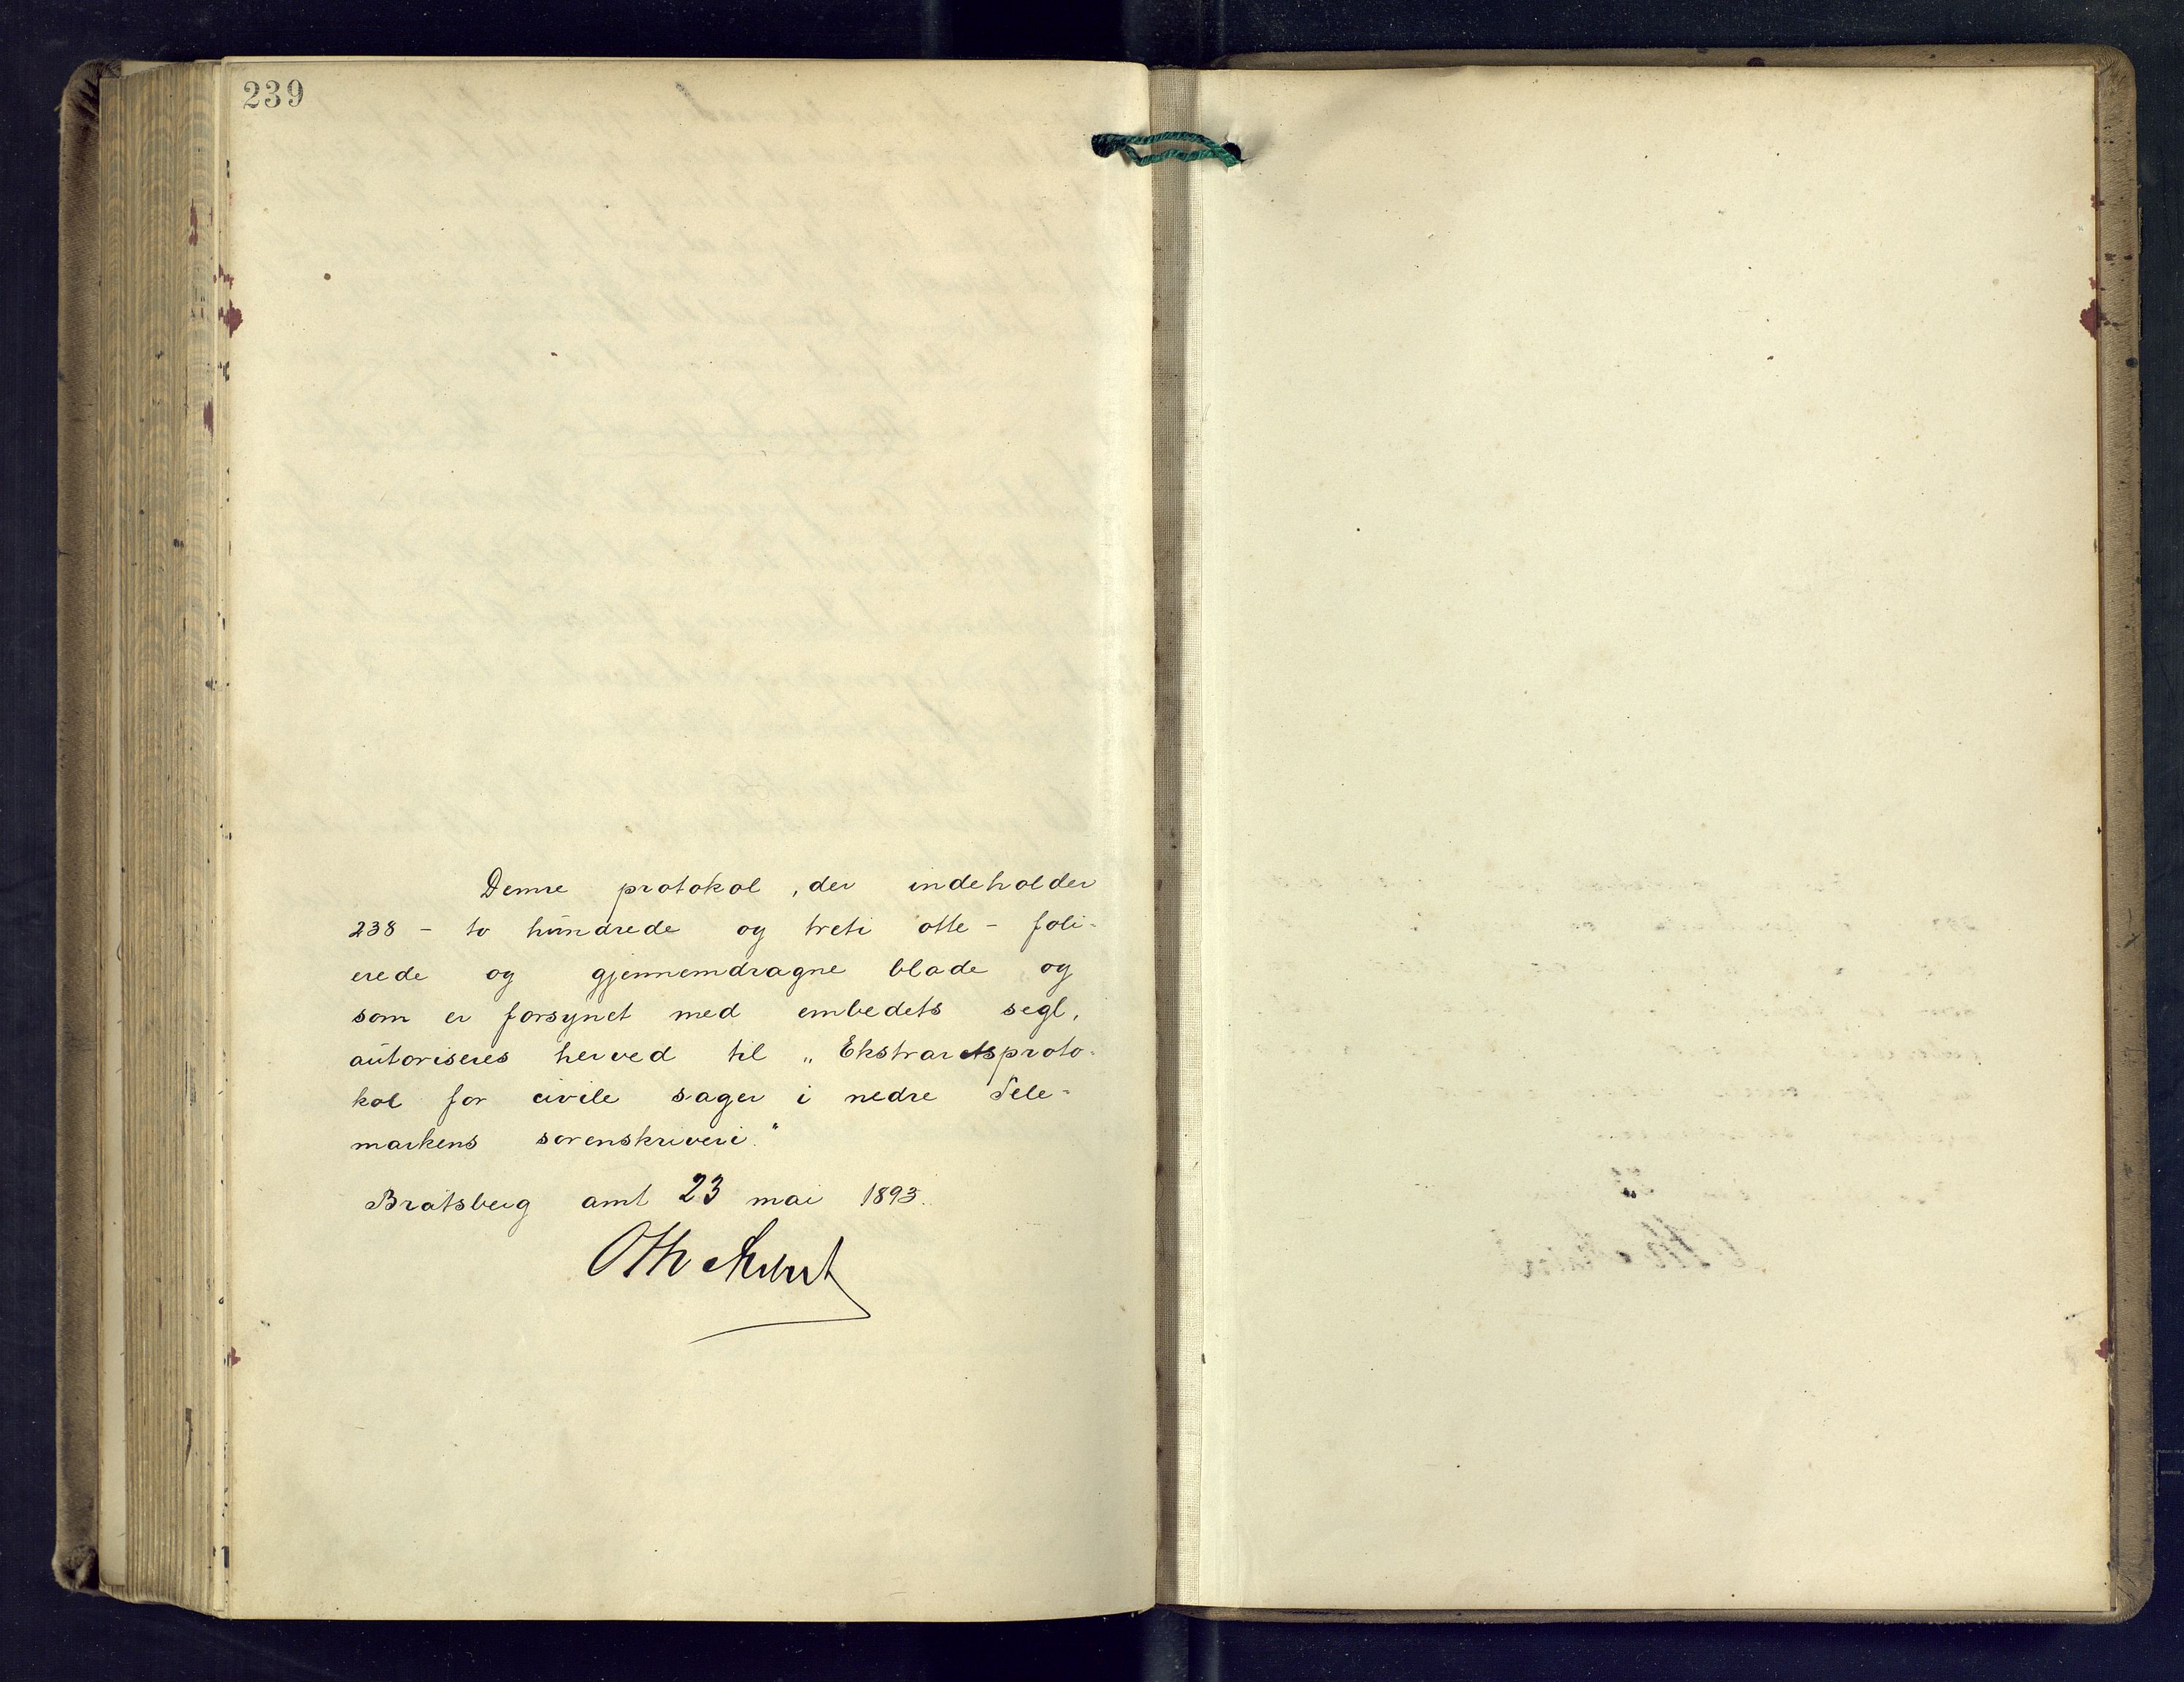 239
Denne protokol, der indeholder
238 - to hundrede og treti otte - foli-
erede og gjennemdragne blade og
som er forsynet med embedets segl,
autoriseres herved til „Ekstraretsproto-
kol for civile sager i nedre Tele-
markens sorenskriveri."
Bratsberg amt 23 mai 1893.
Oth Aubert